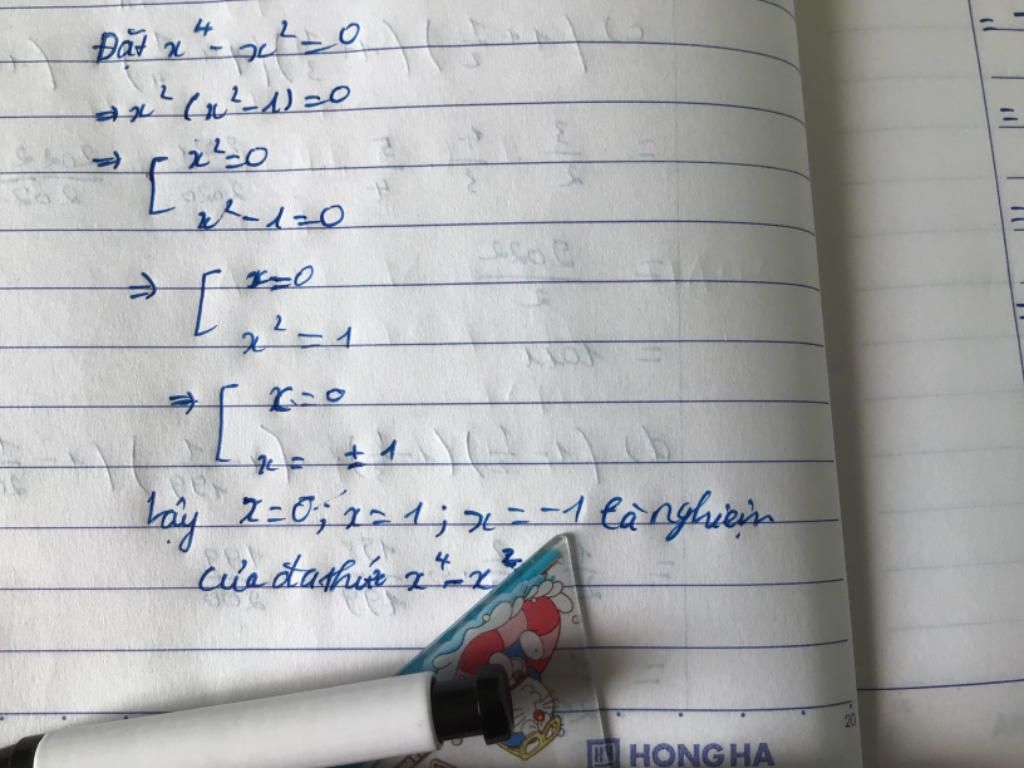 Đặt x⁴ - x² = 0
⇒ x² (x² - 1) = 0
⇒ [ x² = 0
x² - 1 = 0
⇒ [ x = 0
x² = 1
⇒ [ x = 0
x = ± 1
Vậy x = 0; x = 1; x = -1 là nghiệm
của đa thức x⁴ - x²
20
HONG HA